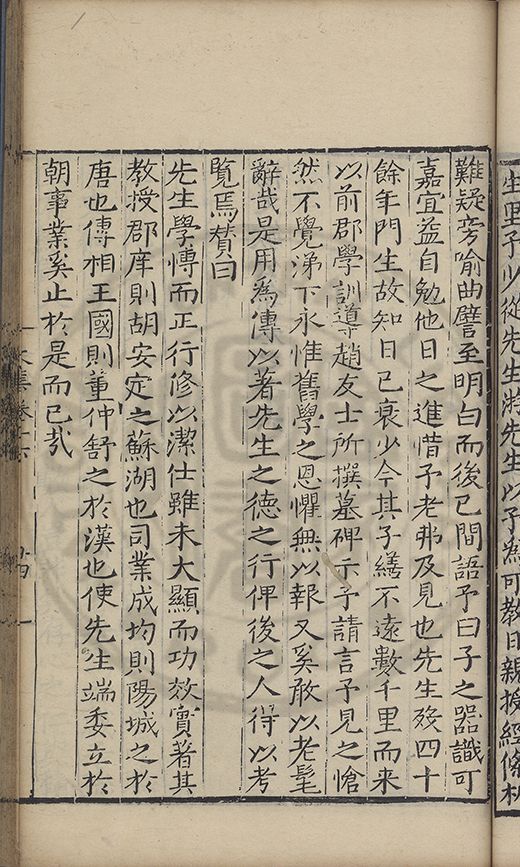 生里子少從先生游先生以子為可教日親授經條析
難疑旁喻曲譬至明白而後已間語予曰子之器識可
嘉宜益自勉他日之進惜予老弗及見也先生歿四十
餘年門生故知日已衰少今其子繕不遠數千里而来
以前郡學訓導趙友士所撰墓碑示予請言予見之愴
然不覺涕下永惟舊學之恩懼無以報又奚敢以老髦
辭哉是用為傳以著先生之德之行俾後之人得以考
覧焉賛曰
先生學博而正行修以潔仕雖未大顯而功效實著其
教授郡庠則胡安定之蘇湖也司業成均則陽城之於
唐也傅相王國則董仲舒之於漢也使先生端委立於
朝事業奚止於是而已㢤
文集卷十六
十四